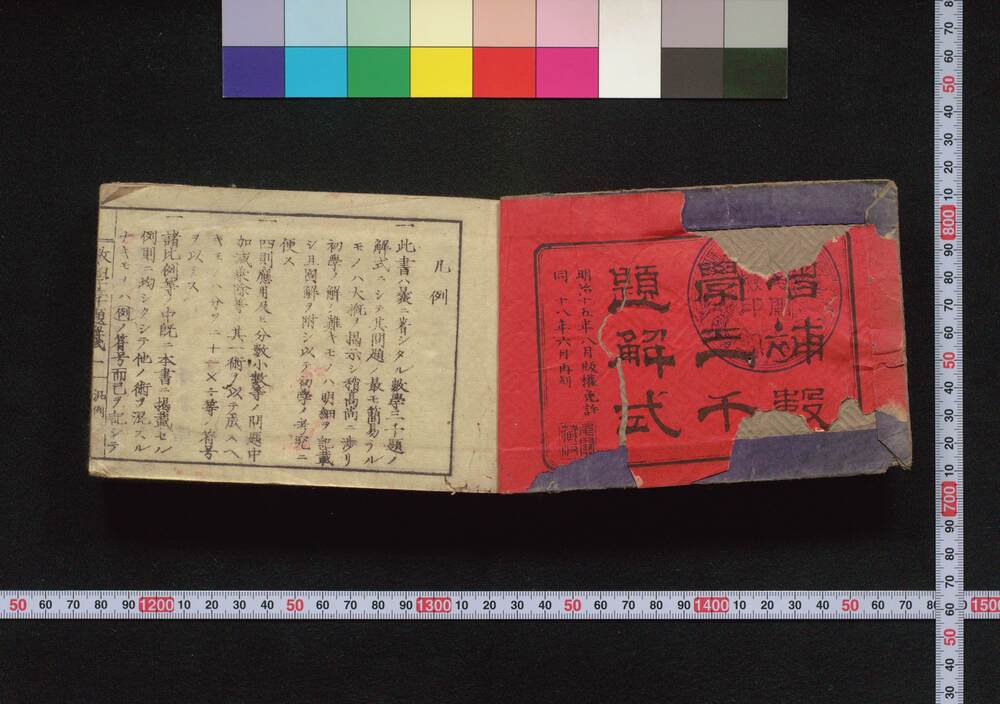 増補數
學三千
題解式
明治十五年八月版權免許
同 十八年六月再刻
凡例
一此書ハ曩ニ著シタル數學三千題ノ
解式ニシテ其問題ノ最モ簡易ナル
モノハ大概ヲ掲示シ稍高尚ニ渉リ
初學ノ解シ難キモノハ明細ヲ記載
シ且圖解ヲ附シ以テ初學ノ考究ニ
便ス
一四則應用及ヒ分數小數等ノ問題中
加減乗除等其術ノ以テ成ヘ
キモノハ分ツニ十一×÷等ノ符号
ヲ以
一諸比例等ノ中既ニ本書ニ掲載セル
例則ニ均シクシテ他ノ術ヲ混スル
ナキモノハ例ノ符号而已ヲ記シテ
50 60 70 80 90 1200 10 20 30 40 50 60 70 80 90 1300 10 20 30 40 50 60 70 80 90 1400 10 20 30 40 50 60 70 80 1500
80 70 60 50 40 30 20 10 800 90 80 70 60 50 40 30 20 10 700 90 80 70 60 50 40 30